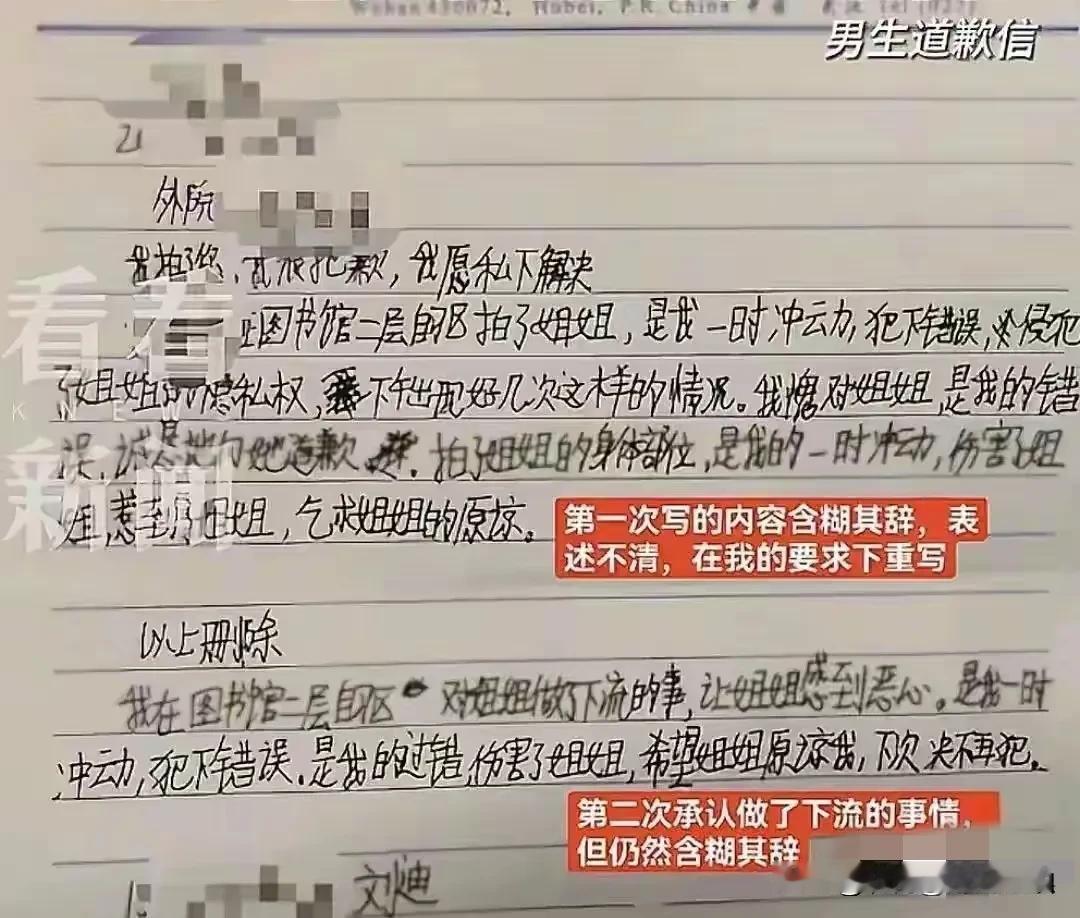 Wuhan 430072, Hubei, P.R.China 中国
男生道歉信
外院
抱歉，我愿私下解决
在图书馆二层自习区拍了姐姐，是我一时冲动，犯下错误，侵犯
了姐姐的隐私权，下午出现好几次这样的情况。我愧对姐姐，是我的错
误，诚恳地向她道歉，拍了姐姐的身体部位，是我的一时冲动，伤害了姐
姐，惹到了姐姐，乞求姐姐的原谅。
第一次写的内容含糊其辞，表
述不清，在我的要求下重写
以上删除
我在图书馆二层自习区 对姐姐做了下流的事，让姐姐感到恶心。是我一时
冲动，犯下错误。是我的过错，伤害了姐姐，希望姐姐原谅我，下次决不再犯。
第二次承认做了下流的事情，
但仍然含糊其辞
看看
KNEWS
新闻